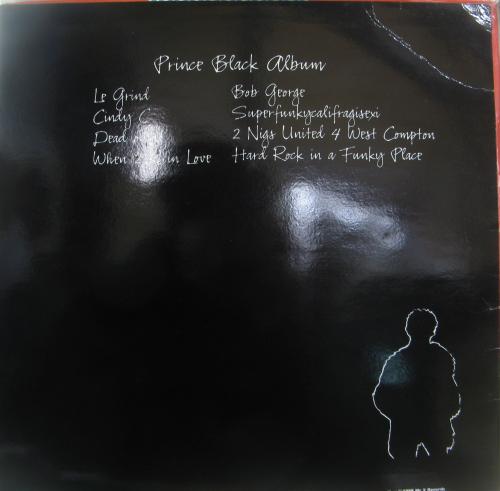 Prince Black Album
Le Grind
Cindy C
Dead
When 2 in Love
Bob George
Superfunkycalifragisexi
2 Nigs United 4 West Compton
Hard Rock in a Funky Place